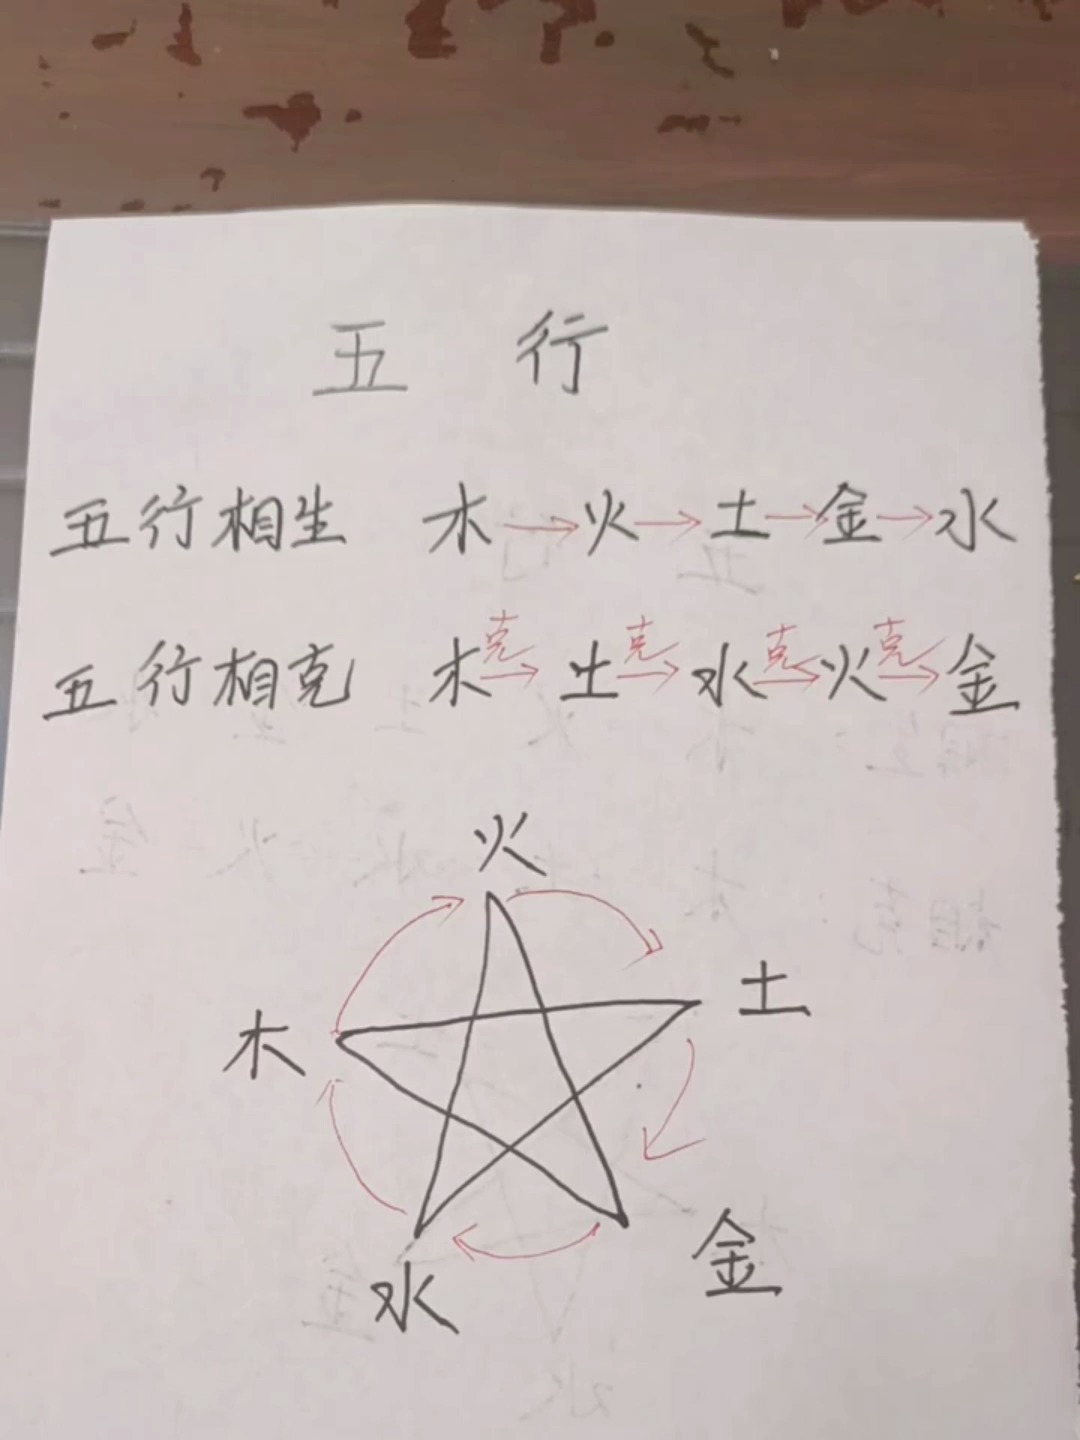 五行
五行相生 木→火→土→金→水
五行相克 木克→土克→水克→火克→金
火
土
木
金
水